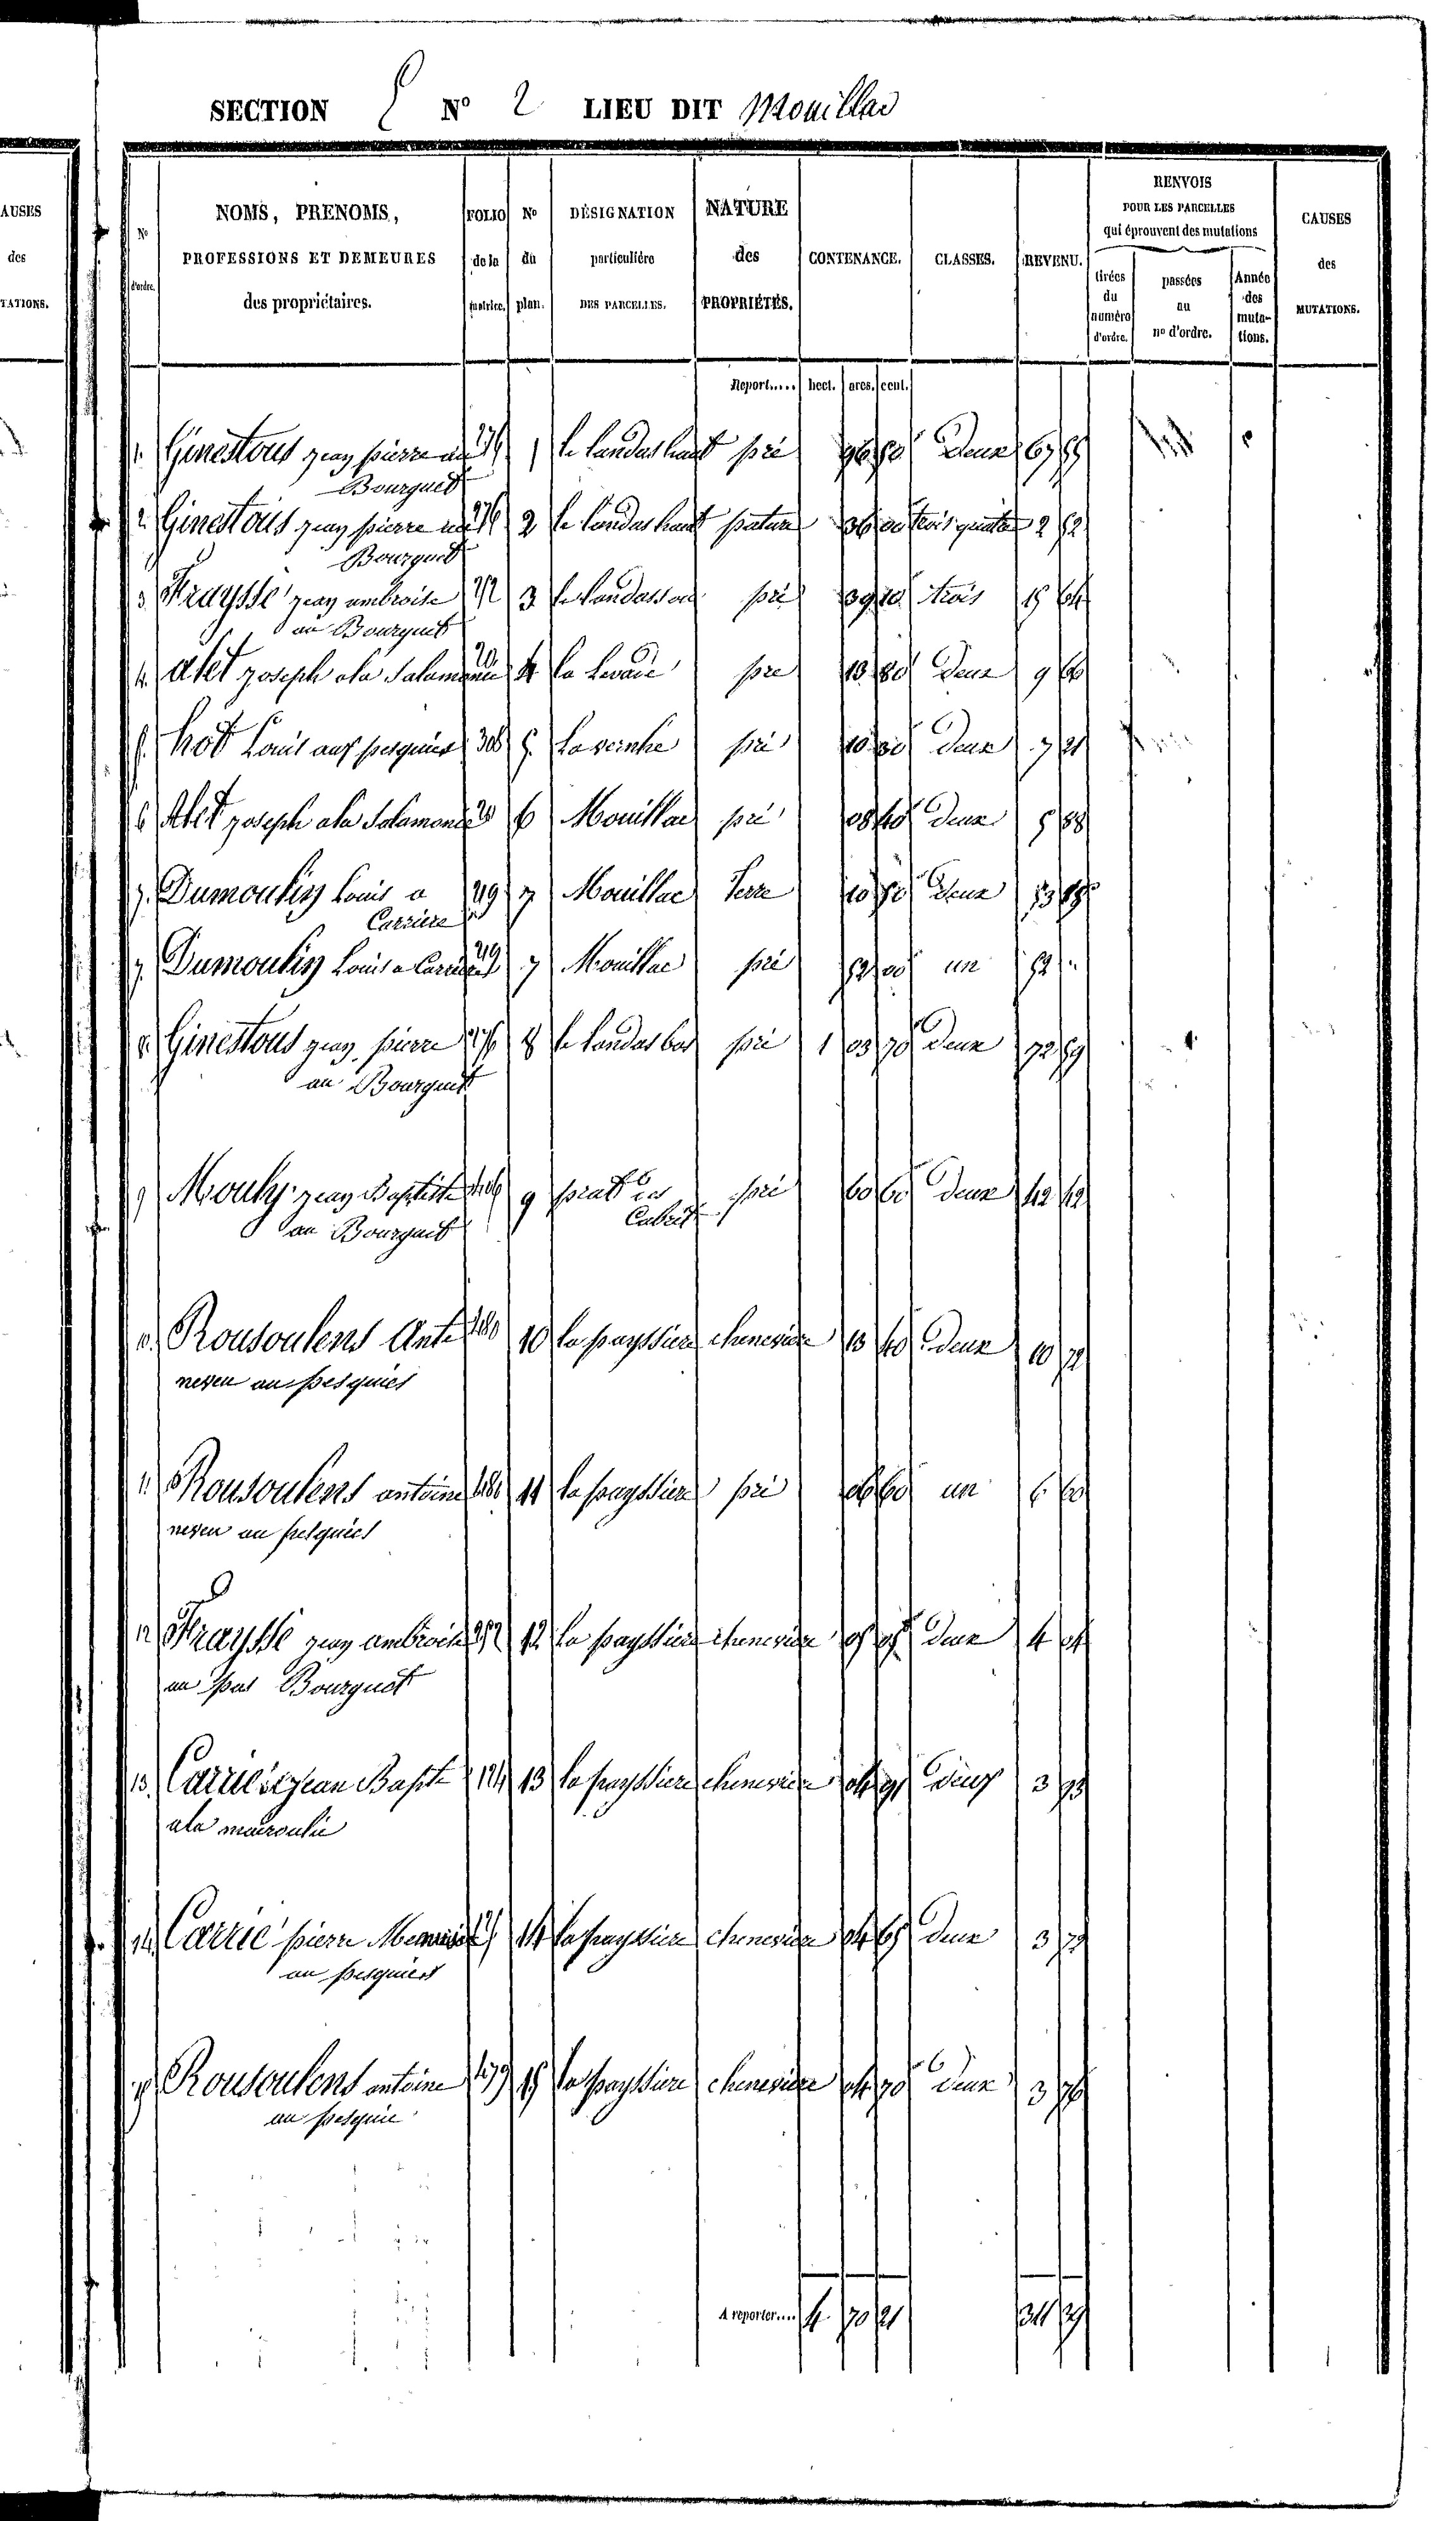 SECTION E N° 2 LIEU DIT Mouillac
AUSES
des
TATIONS.
N° d'ordre.
NOMS, PRENOMS,
PROFESSIONS ET DEMEURES
des propriétaires.
FOLIO de la matrice.
N° du plan.
DÉSIGNATION particulière DES PARCELLES.
NATURE des PROPRIÉTÉS.
CONTENANCE.
CLASSES.
REVENU.
RENVOIS
POUR LES PARCELLES
qui éprouvent des mutations
tirées du numéro d'ordre.
passées au n° d'ordre.
Année des muta-tions.
CAUSES
des
MUTATIONS.
Report..... hect. ares. cent.
1. Ginestous jean pierre au 276 1 le landas haut pré 96 50 Deux 67 55
Bourguet
2. Ginestous jean pierre au 276 2 le landas haut pature 36 00 trois quatre 2 52
Bourguet
3. Fraysse jean ambroise 252 3 le landassou pré 39 10 trois 15 64
au Bourguet
4. alet joseph a la Salamonie 20 4 la pré 13 80 Deux 9 66
5. hot Louis aux pesquies 308 5 La vernhe pré 10 30 Deux 7 21
6. Alet joseph a la Salamonie 20 6 Mouillac pré 08 40 Deux 5 88
7. Dumoulin Louis a 219 7 Mouillac Terre 10 50 Deux
Carriere
7. Dumoulin Louis a Carriere 219 7 Mouillac pré 52 00 un 52 "
8. Ginestous jean pierre 276 8 le landas bas pré 1 03 70 Deux 72 59
au Bourguet
9 Mouly jean Baptiste 406 9 prat pré 60 60 Deux 42 42
au Bourguet
10. Rousoulens Ante 480 10 la payssiere cheneviere 13 40 Deux 10 72
neveu au pesquies
11. Rousoulens antoine 480 11 la payssiere pré 06 60 un 6 60
neveu au pesquies
12 Fraysse jean ambroise 252 12 la payssiere cheneviere 05 05 deux 4 04
au pas Bourguet
13. Carrie jean Bapte 124 13 la payssiere cheneviere 04 91 Deux 3 93
a la mairoulie
14 Carrie pierre 14 la payssiere cheneviere 04 65 Deux 3 72
au pesquies
15 Rousoulens antoine 479 15 la payssiere cheneviere 04 70 Deux 3 76
au pesquie
A reporter.... 4 70 21 311 39